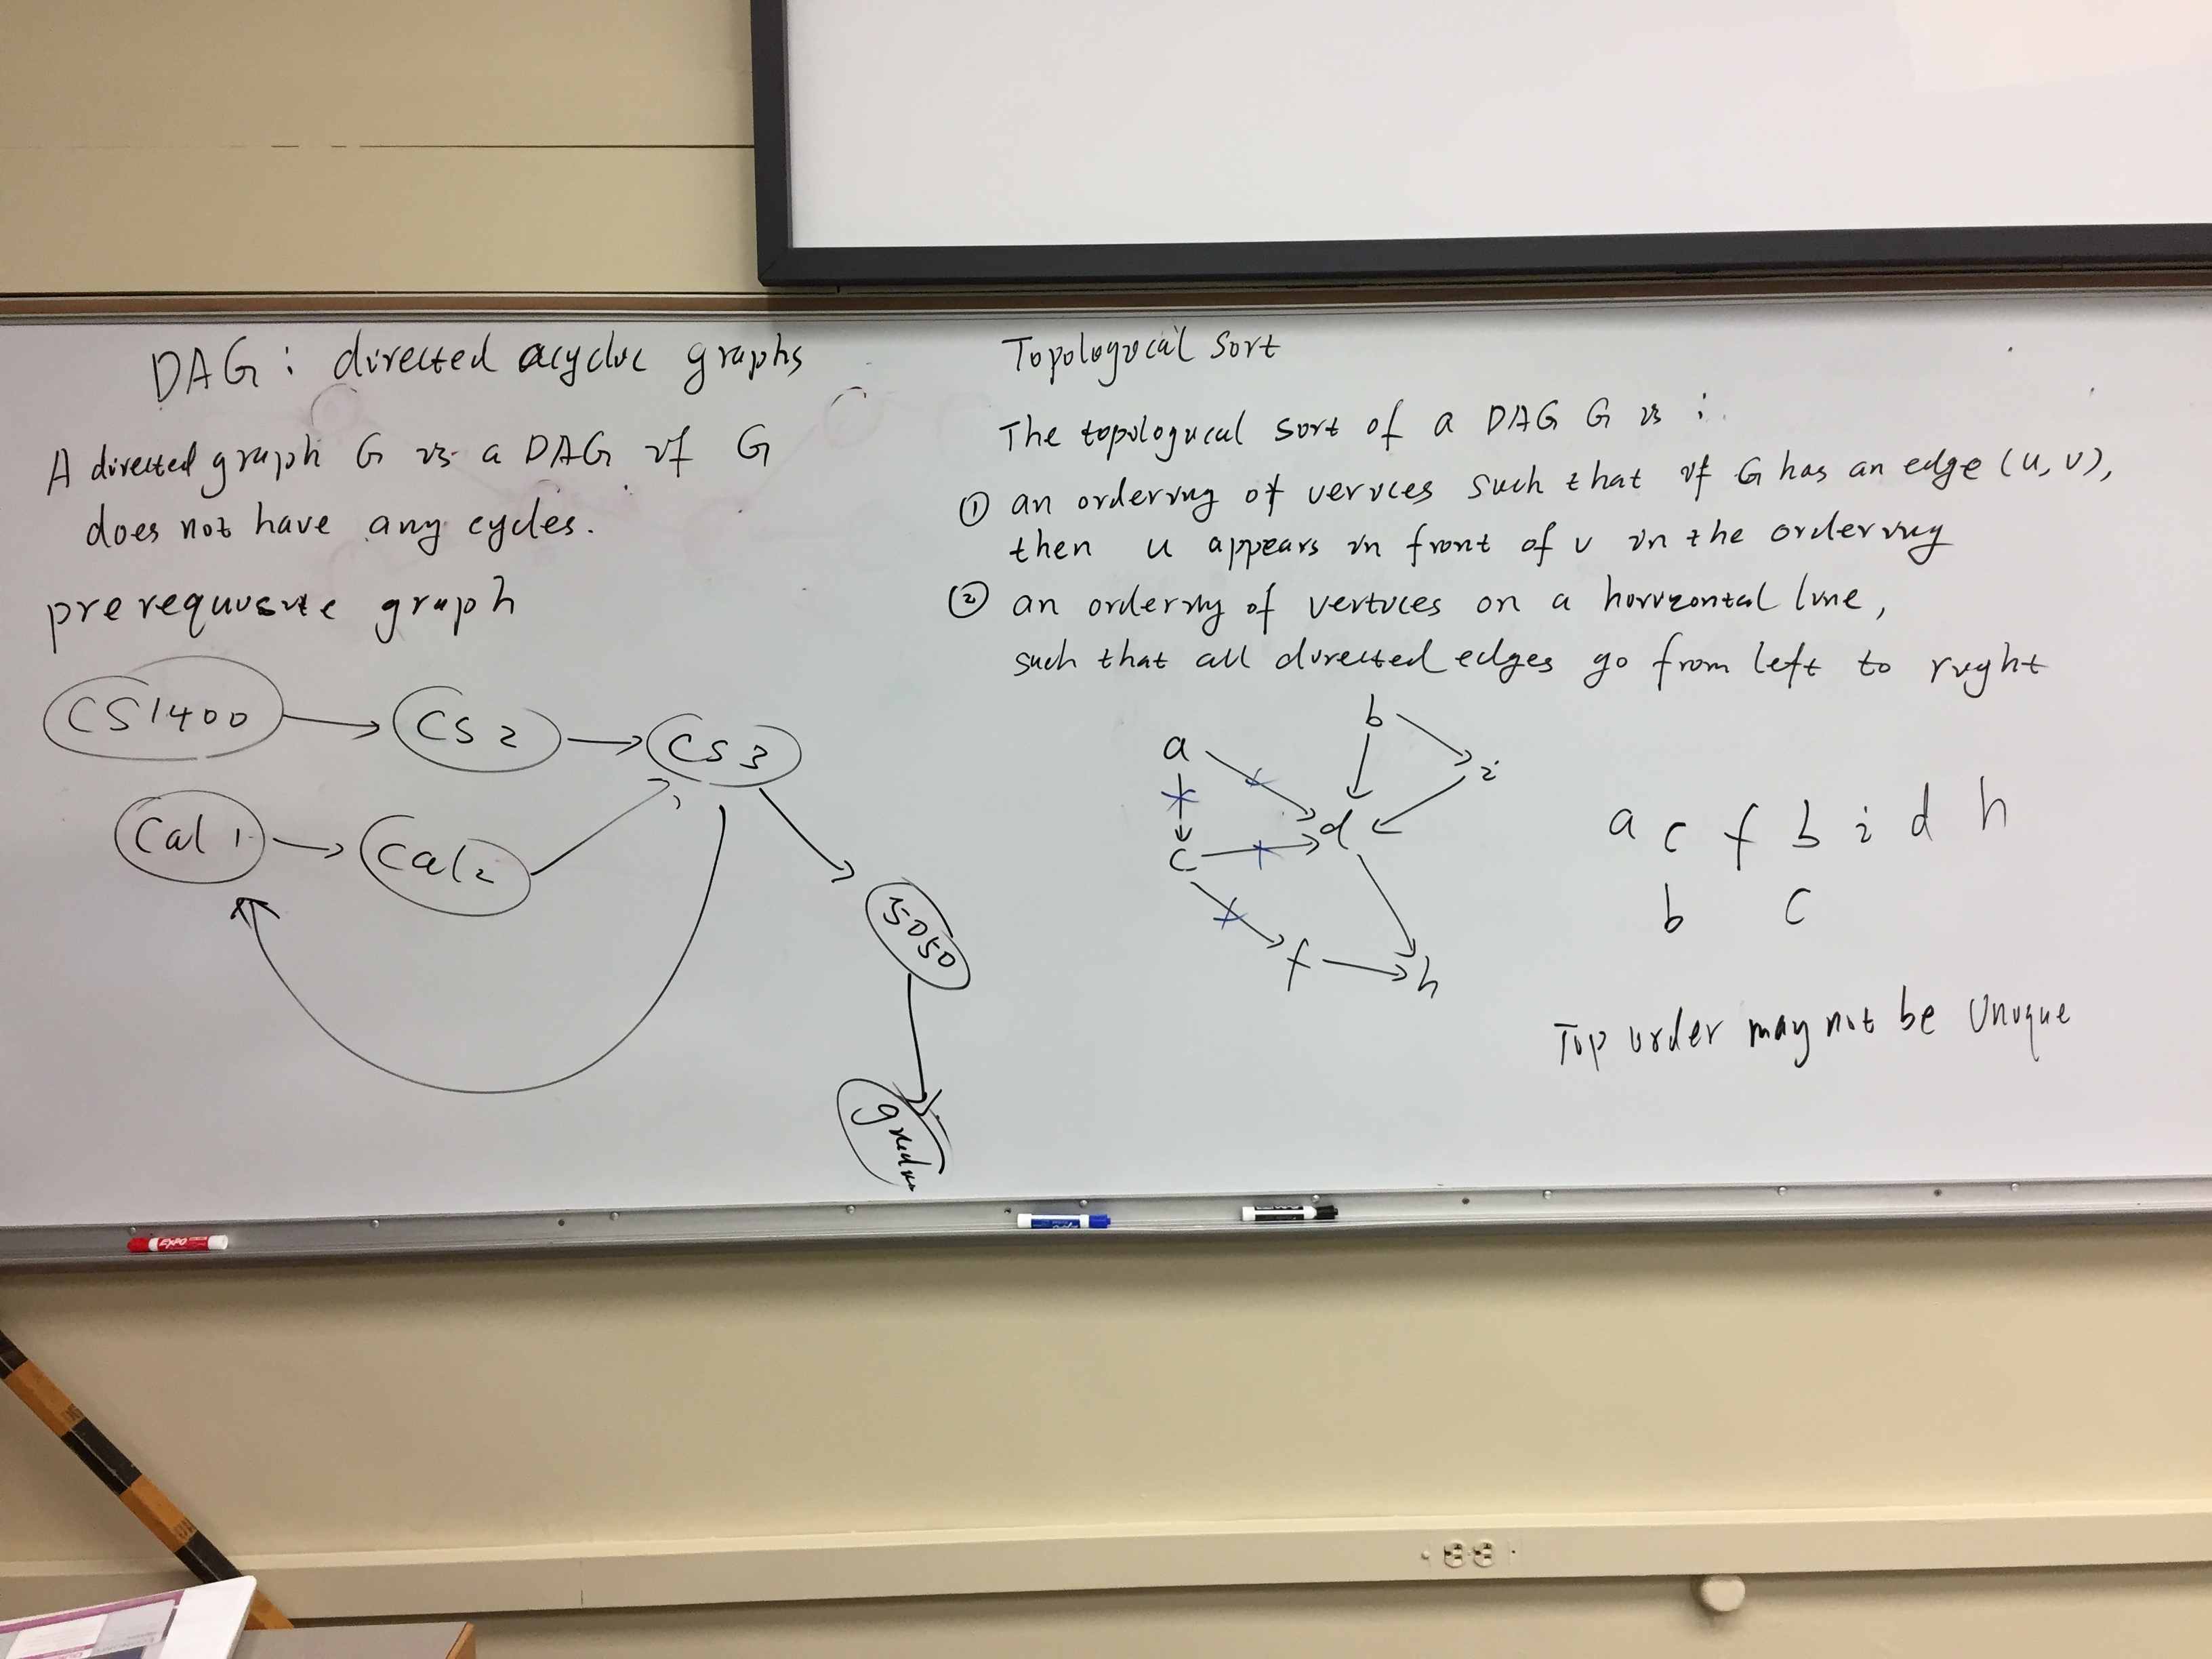 DAG: directed acyclic graphs
A directed graph G is a DAG if G
does not have any cycles.
prerequisite graph
CS1400
CS2
CS3
Cal 1
Cal2
5050
Topological Sort
The topological sort of a DAG G is:
① an ordering of verices such that if G has an edge (u, v),
then u appears in front of v in the ordering
② an ordering of vertices on a horizontal line,
such that all directed edges go from left to right
b
a
i
d
c
f
h
a c f b i d h
b c
Top order may not be unique
EXPO